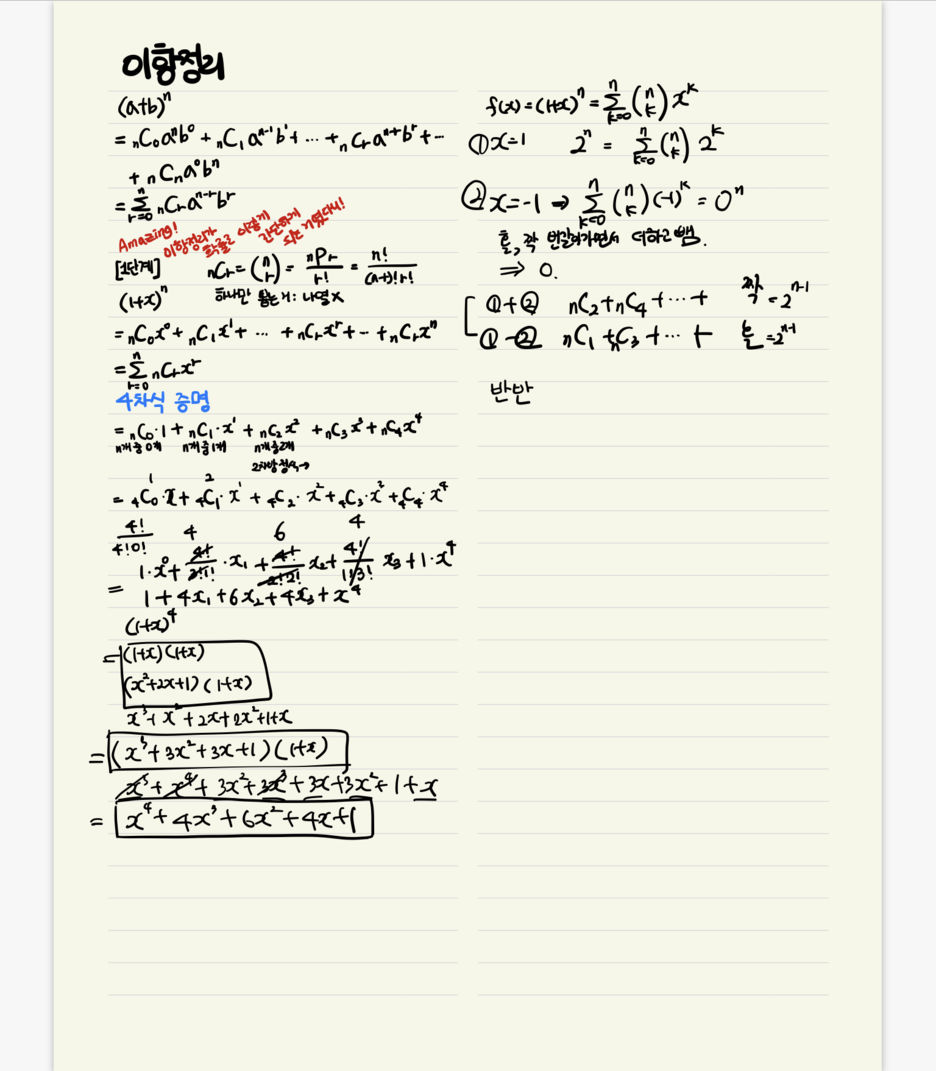 이항정리
(a+b)ⁿ
= ₙC₀aⁿb⁰ + ₙC₁aⁿ⁻¹b¹ + ⋯ + ₙCᵣaⁿ⁻ʳbʳ + ⋯
+ ₙCₙa⁰bⁿ
= Σ_{r=0}^{n} ₙCᵣaⁿ⁻ʳbʳ
Amazing!
이항정리가
확률로 이렇게
간단하게
되는 거였다니!
[1단계] ₙCᵣ = (n r) = ₙPᵣ/r! = n!/(n-r)!r!
하나만 뽑는거: 나열 X
(1+x)ⁿ
= ₙC₀x⁰ + ₙC₁x¹ + ⋯ + ₙCᵣxʳ + ⋯ + ₙCₙxⁿ
= Σ_{r=0}^{n} ₙCᵣxʳ
4차식 증명
= ₙC₀·1 + ₙC₁·x¹ + ₙC₂x² + ₙC₃x³ + ₙC₄x⁴
n개중0개 n개중1개 n개중2개
2차방정식→
1 2
= ₄C₀·x + ₄C₁·x¹ + ₄C₂·x² + ₄C₃·x³ + ₄C₄·x⁴
4!/4!0! 4 6 4
1·x⁰ + 4!/3!1!·x₁ + 4!/2!2! x₂ + 4!/1!3! x₃ + 1·x⁴
= 1+4x₁+6x₂+4x₃+x⁴
(1+x)⁴
= (1+x)(1+x)
(x²+2x+1)(1+x)
x³+x²+2x+2x²+1+x
= (x³+3x²+3x+1)(1+x)
x³+x⁴+3x²+3x³+3x+3x²+1+x
= x⁴+4x³+6x²+4x+1
f(x)=(1+x)ⁿ = Σ_{k=0}^{n} (n k) xᵏ
① x=1 2ⁿ = Σ_{k=0}^{n} (n k) 2ᵏ
② x=-1 ⇒ Σ_{k=0}^{n} (n k)(-1)ᵏ = 0ⁿ
홀, 짝 번갈아가면서 더하고 뺌.
⇒ 0.
①+② ₙC₂+ₙC₄+⋯+ 짝 = 2ⁿ⁻¹
①-② ₙC₁+ₙC₃+⋯+ 홀 = 2ⁿ⁻¹
반반